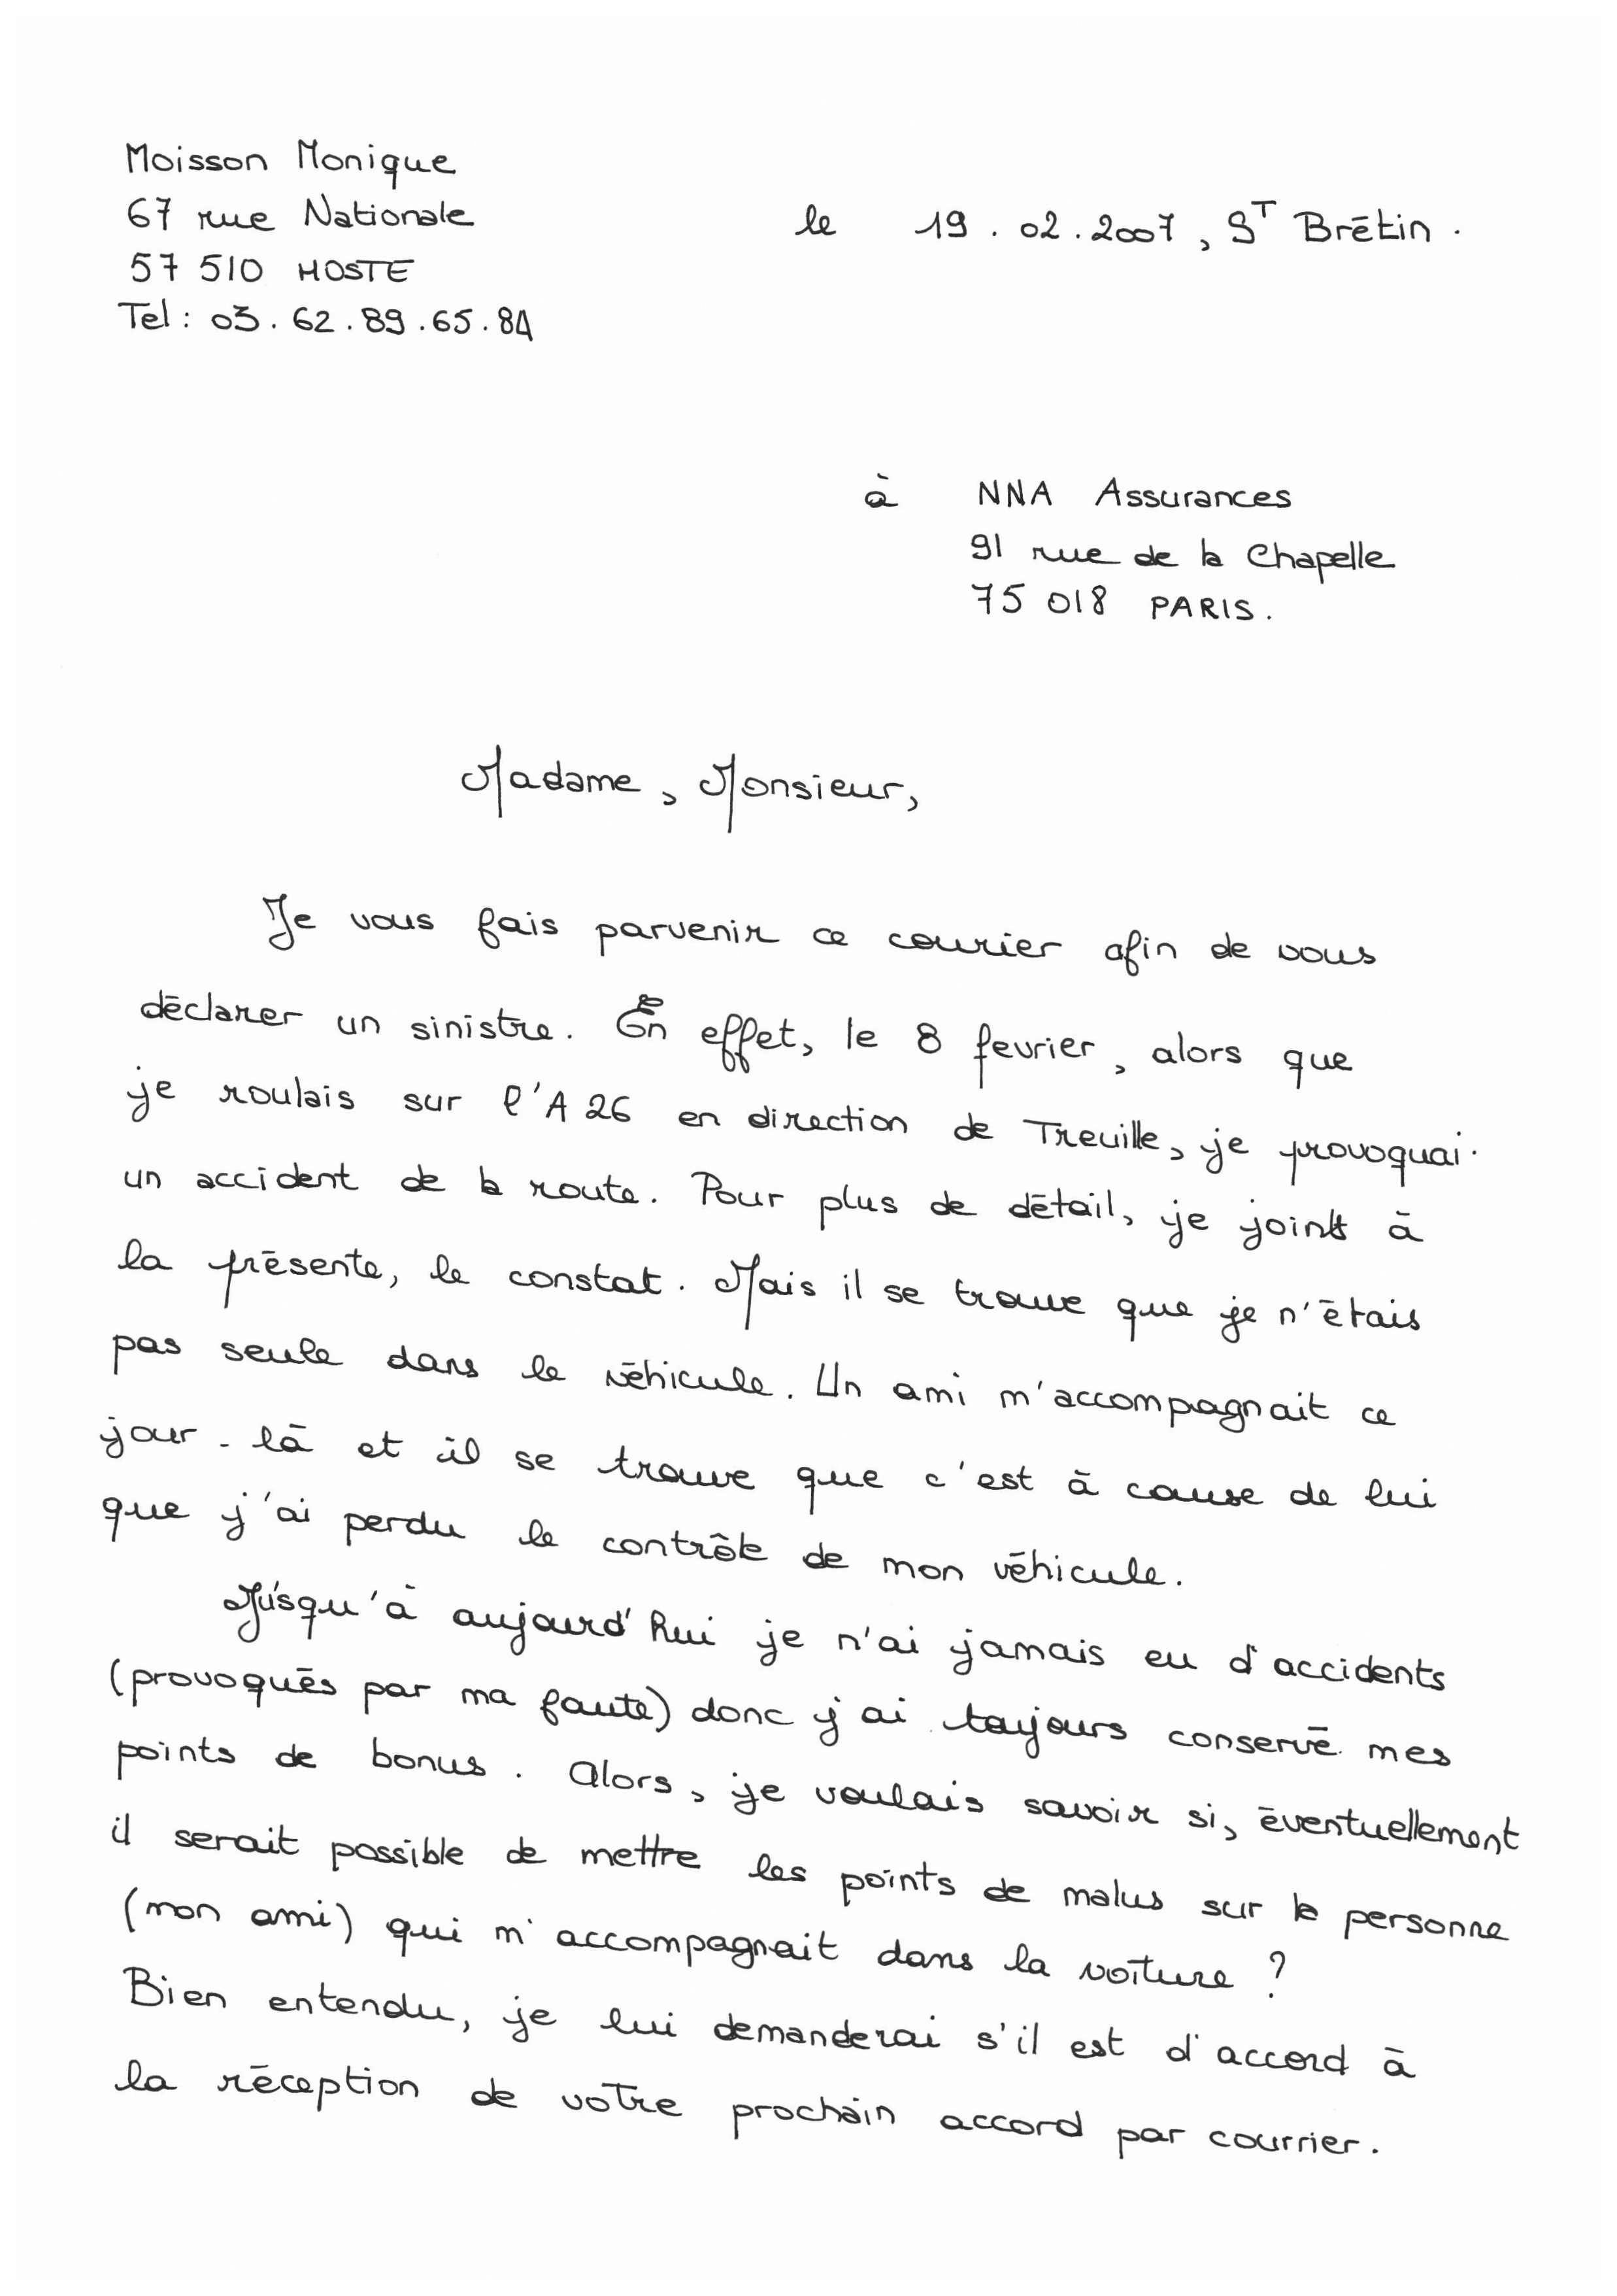 Moisson Monique
67 rue Nationale
le 19.02.2007, ST Brétin.
57 510 HOSTE
Tel : 03.62.89.65.84
à NNA Assurances
91 rue de la Chapelle
75 018 PARIS.
Madame, Monsieur,
Je vous fais parvenir ce courier afin de vous
déclarer un sinistre. En effet, le 8 fevrier, alors que
je roulais sur l'A 26 en direction de Treuille, je provoquai
un accident de la route. Pour plus de détail, je joints à
la présente, le constat. Mais il se trouve que je n'étais
pas seule dans le véhicule. Un ami m'accompagnait ce
jour-là et il se trouve que c'est à cause de lui
que j'ai perdu le contrôle de mon véhicule.
Jusqu'à aujourd'hui je n'ai jamais eu d'accidents
(provoqués par ma faute) donc j'ai toujours conservé mes
points de bonus. Alors, je voulais savoir si, éventuellement
il serait possible de mettre les points de malus sur la personne
(mon ami) qui m'accompagnait dans la voiture ?
Bien entendu, je lui demanderai s'il est d'accord à
la réception de votre prochain accord par courrier.